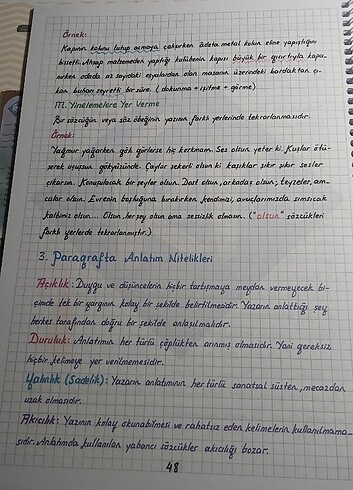 Örnek:
Kapının kolunu tutup açmaya çalışırken âdeta metal kolun eline yapıştığını
hissetti. Ahşap malzemeden yaptığı kulübenin kapısı büyük bir gıcırtıyla kapa-
nırken odada az sayıdaki eşyalardan olan masanın üzerindeki bardaktan çı-
kan buharı seyretti bir süre. (dokunma + işitme + görme)
m. Yinelemelere Yer Verme
Bir sözcüğün veya söz öbeğinin yazının farklı yerlerinde tekrarlanmasıdır.
Örnek:
Yağmur yağarken gök gürlerse hiç korkmam. Ses olsun yeter ki. Kuşlar ötü-
şerek uçuşsun gökyüzünde. Çaylar şekerli olsun ki kaşıklar şıkır şıkır sesler
çıkarsın. Konuşulacak bir şeyler olsun. Dost olsun, arkadaş olsun; teyzeler, am-
calar olsun. Evrenin boşluğuna bırakırken kendimizi, avuçlarımızda sımsıcak
kalbimiz olsun... Olsun, her şey olsun ama sessizlik olmasın. ("olsun" sözcükleri
farklı yerlerde tekrarlanmıştır.)
3. Paragrafta Anlatım Nitelikleri
Açıklık: Duygu ve düşüncelerin hiçbir tartışmaya meydan vermeyecek bi-
çimde tek bir yargının kolay bir şekilde belirtilmesidir. Yazarın anlattığı şey
herkes tarafından doğru bir şekilde anlaşılmalıdır.
Duruluk: Anlatımın her türlü çöplükten arınmış olmasıdır. Yani gereksiz
hiçbir kelimeye yer verilmemesidir.
Yalınlık (Sadelik): Yazarın anlatımının her türlü sanatsal süsten, mecazdan
uzak olmasıdır.
Akıcılık: Yazının kolay okunabilmesi ve rahatsız eden kelimelerin kullanılmama-
sıdır. Anlatımda kullanılan yabancı sözcükler akıcılığı bozar.
48